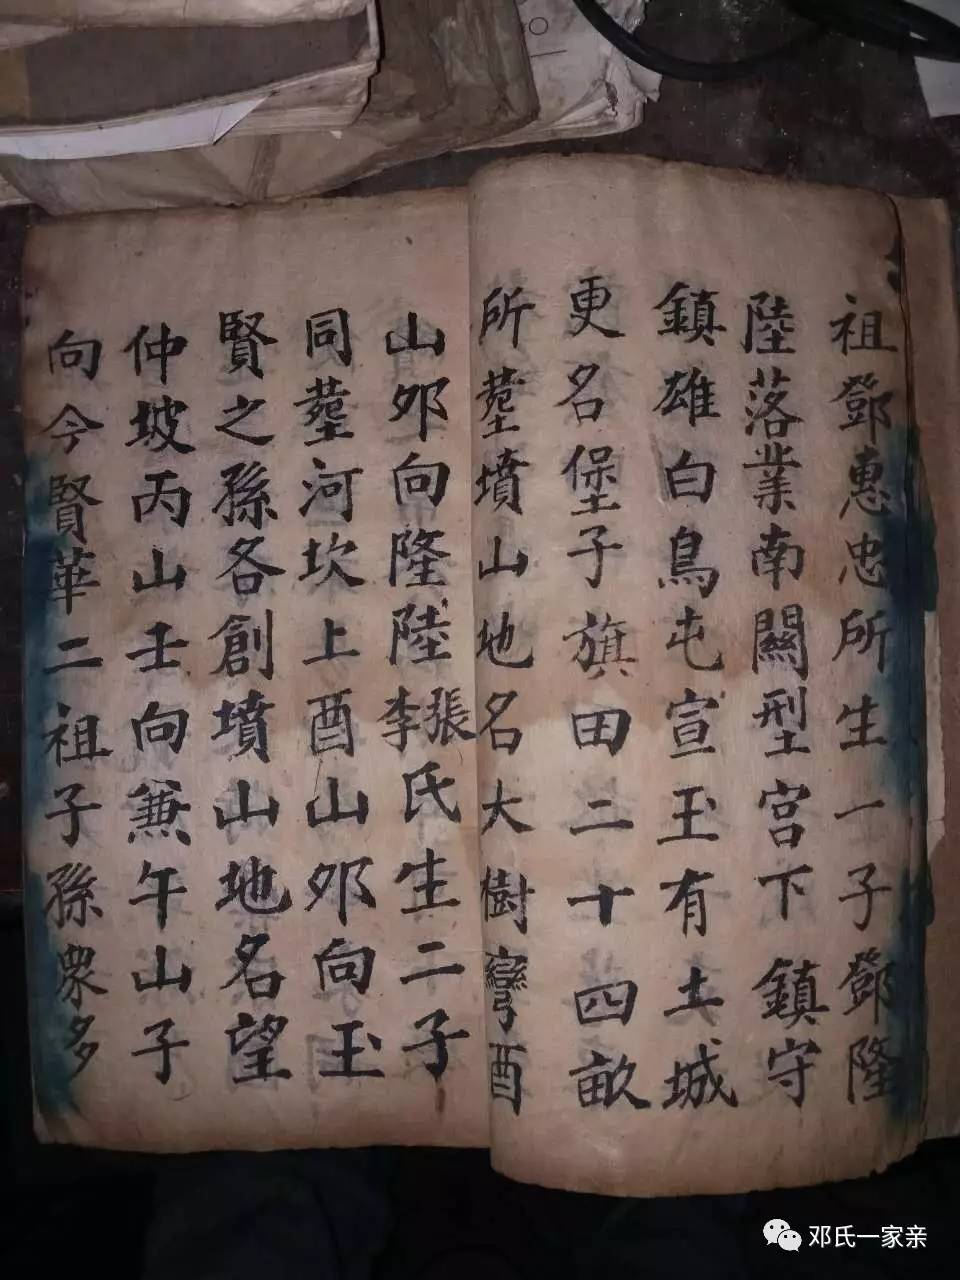 祖鄧惠忠所生一子鄧隆
陸落業南關型宮下鎮守
鎮雄白鳥屯宣玉有土城
更名堡子旗田二十四畝
所塟墳山地名大樹彎酉
山夘向隆陸張李氏生二子
同塟河坎上酉山夘向玉
賢之孫各創墳山地名望
仲坡丙山壬向兼午山子
向今賢華二祖子孫衆多
邓氏一家亲